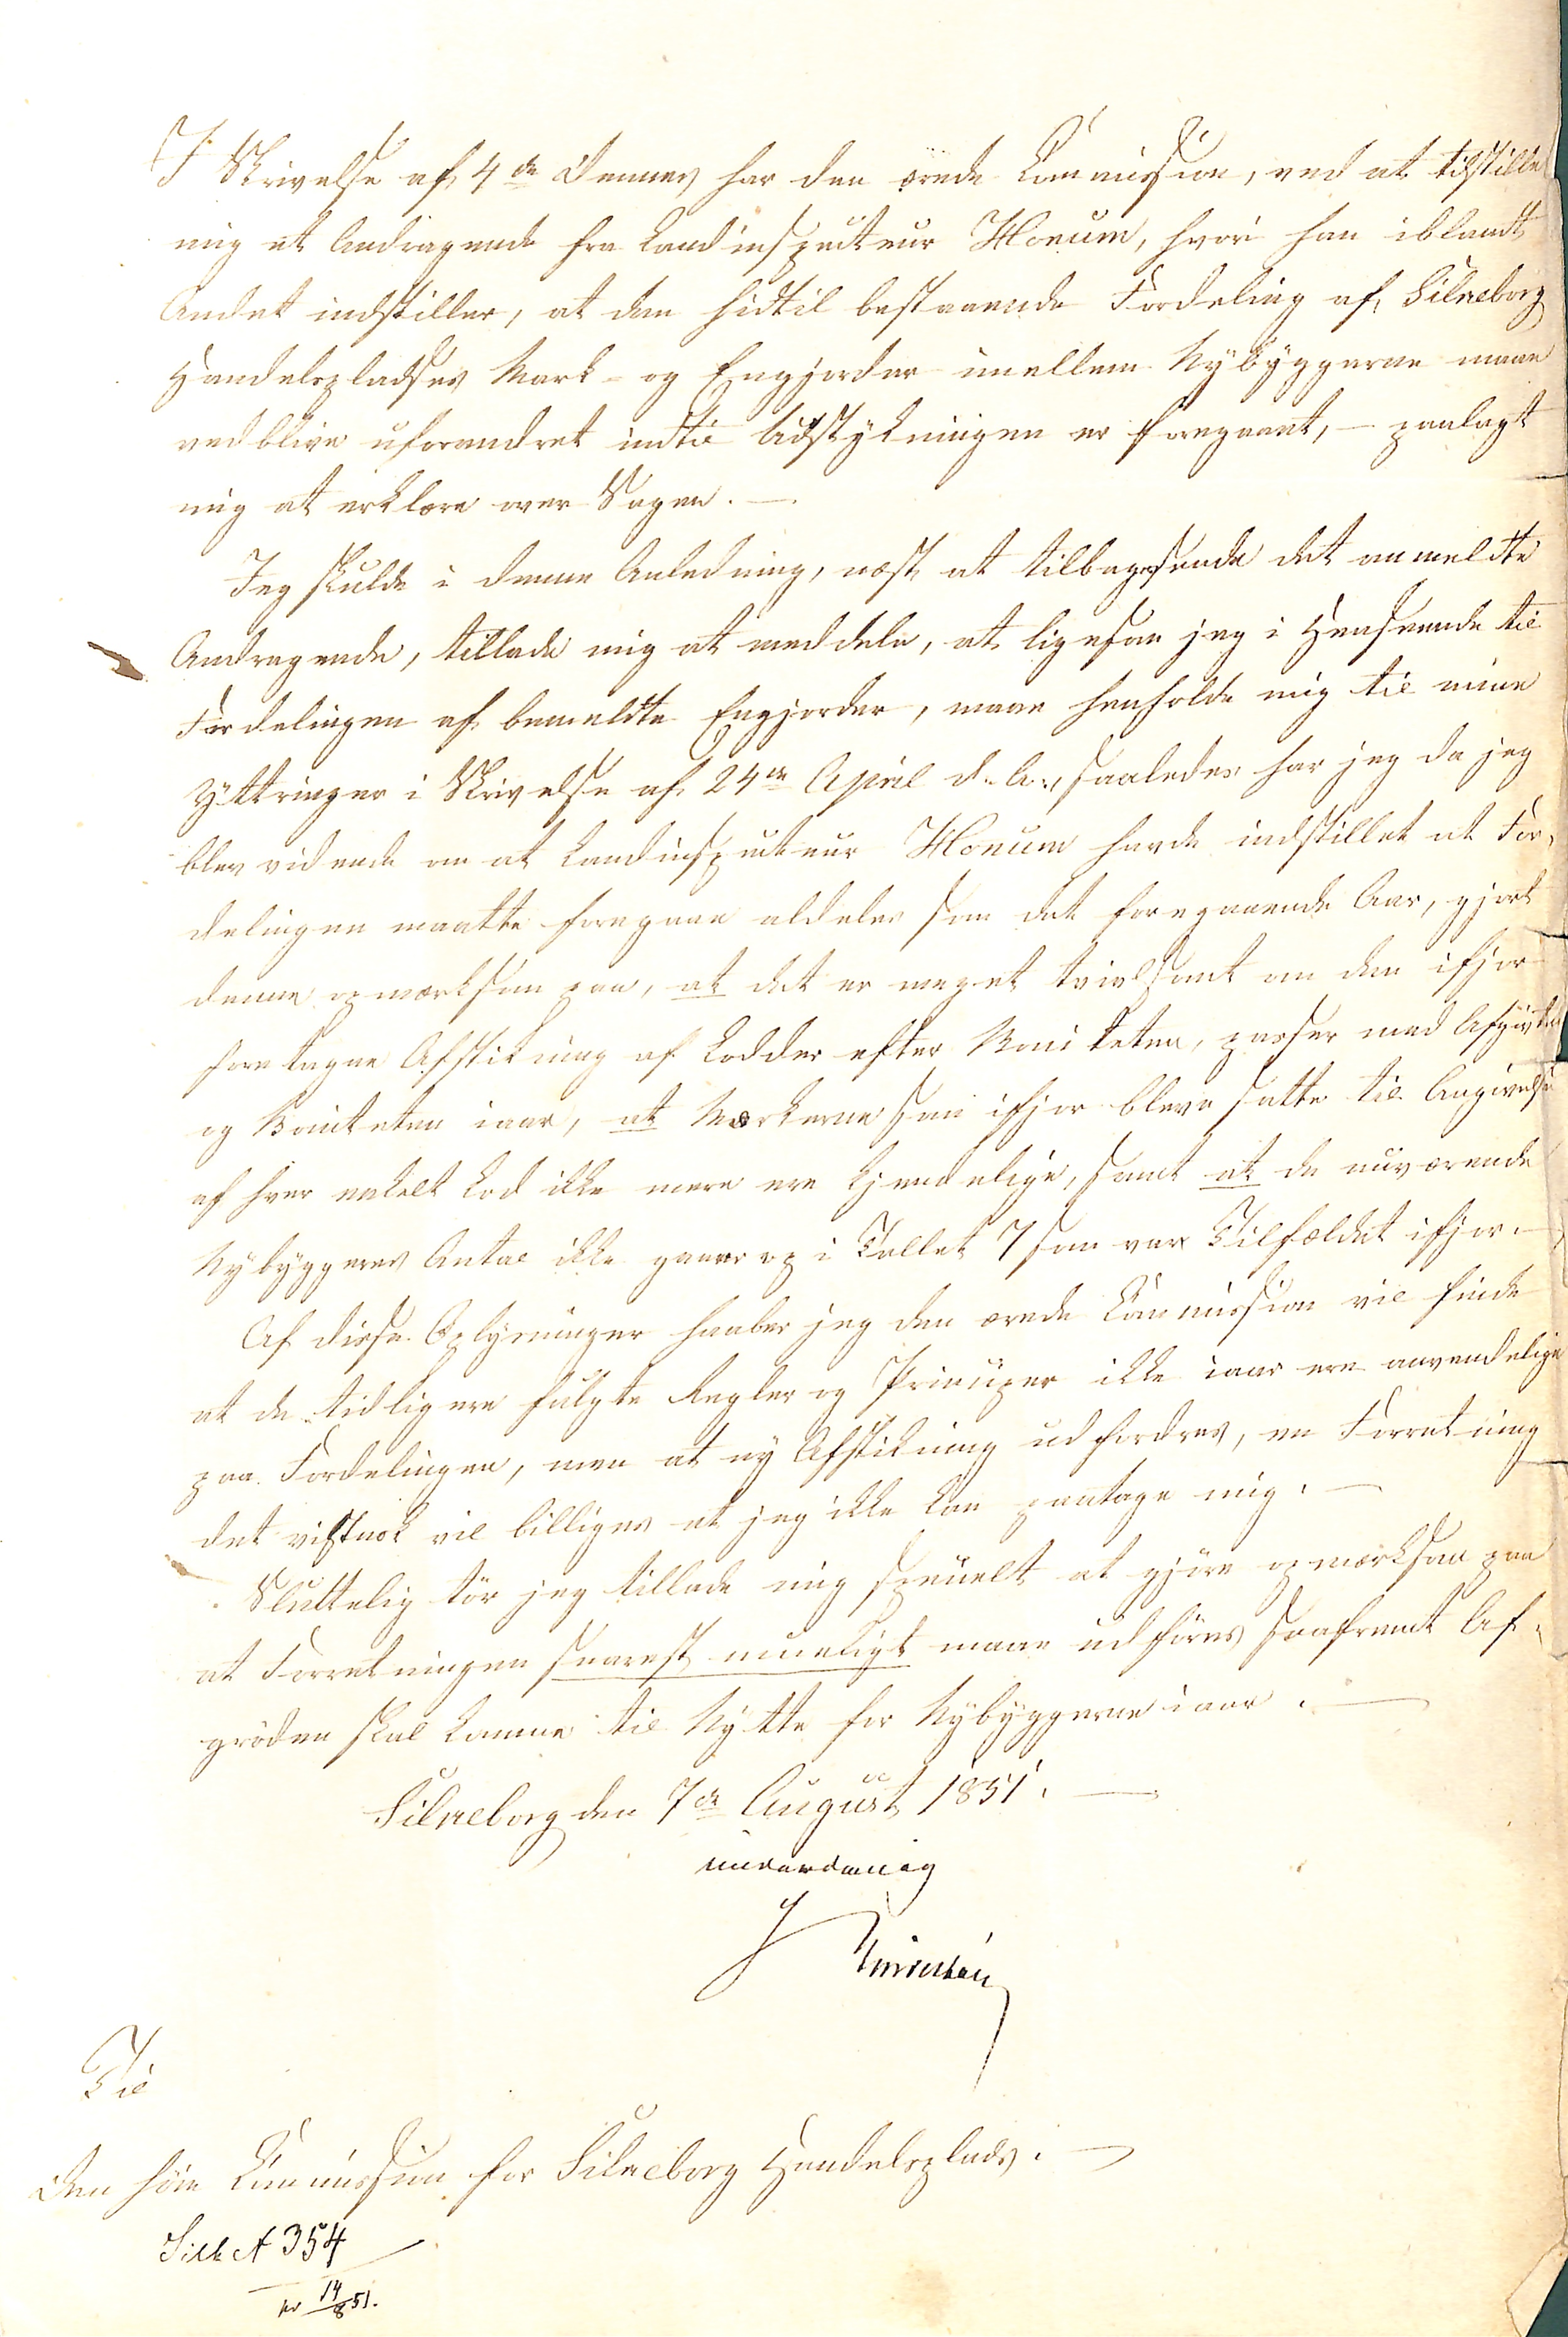 I Skrivelse af 4de dennes har den ærede Commission, ved at tilstille
mig et Andragende fra Landinspecteur Hoeum, hvori han iblandt
Andet indstiller, at den hidtil bestaaende Fordeling af Silkeborg
Handelspladses Mark- og Engjorder imellem Nybyggerne maae
vedblive uforandret indtil Udstykningen er foregaaet, – paalagt
mig at erklære over Sagen. –
Jeg skulde i denne Anledning, næst at tilbagesende det anmeldte
Andragende, tillade mig at meddele, at ligesom jeg i Henseende til
Fordelingen af bemeldte Engjorder, maae henholde mig til mine
Yttringer i Skrivelse af 24de April d. A., saaledes har jeg da jeg
blev vidende om at Landinspecteur Hoeum havde indstillet at For-
delingen maatte foregaae aldeles som det foregaaende Aar, gjort
denne opmærksom paa, at det er meget tvivlsomt om den ifjor
foretagne Afstikning af Lodder efter Boniteten, passer med Afgrøden
og Boniteten iaar, at Mærkerne som ifjor bleve satte til Angivelse
af hver enkelt Lod ikke mere ere kjendelige, samt at de nuværende
Nybyggeres Antal ikke gaaer op i Tallet 7 som var Tilfældet ifjor. –
Af disse Oplysninger haaber jeg den ærede Commission vil finde
at de tidligere fulgte Regler og Principer ikke iaar ere anvendelige
paa Fordelingen, men at ny Afstikning udfordres, en Forretning
det vistnok vil billiges at jeg ikke kan paatage mig. –
Sluttelig tör jeg tillade mig specielt at gjöre opmærksom paa
at Forretningen snarest mueligt maae udföres saafremt Af-
gröden skal komme til Nytte for Nybyggerne iaar. –
Silkeborg den 7de August 1851. –
underdanig
Til
Den höie Commission for Silkeborg Handelsplads. –
Silk A 354
pr 14/8 51.